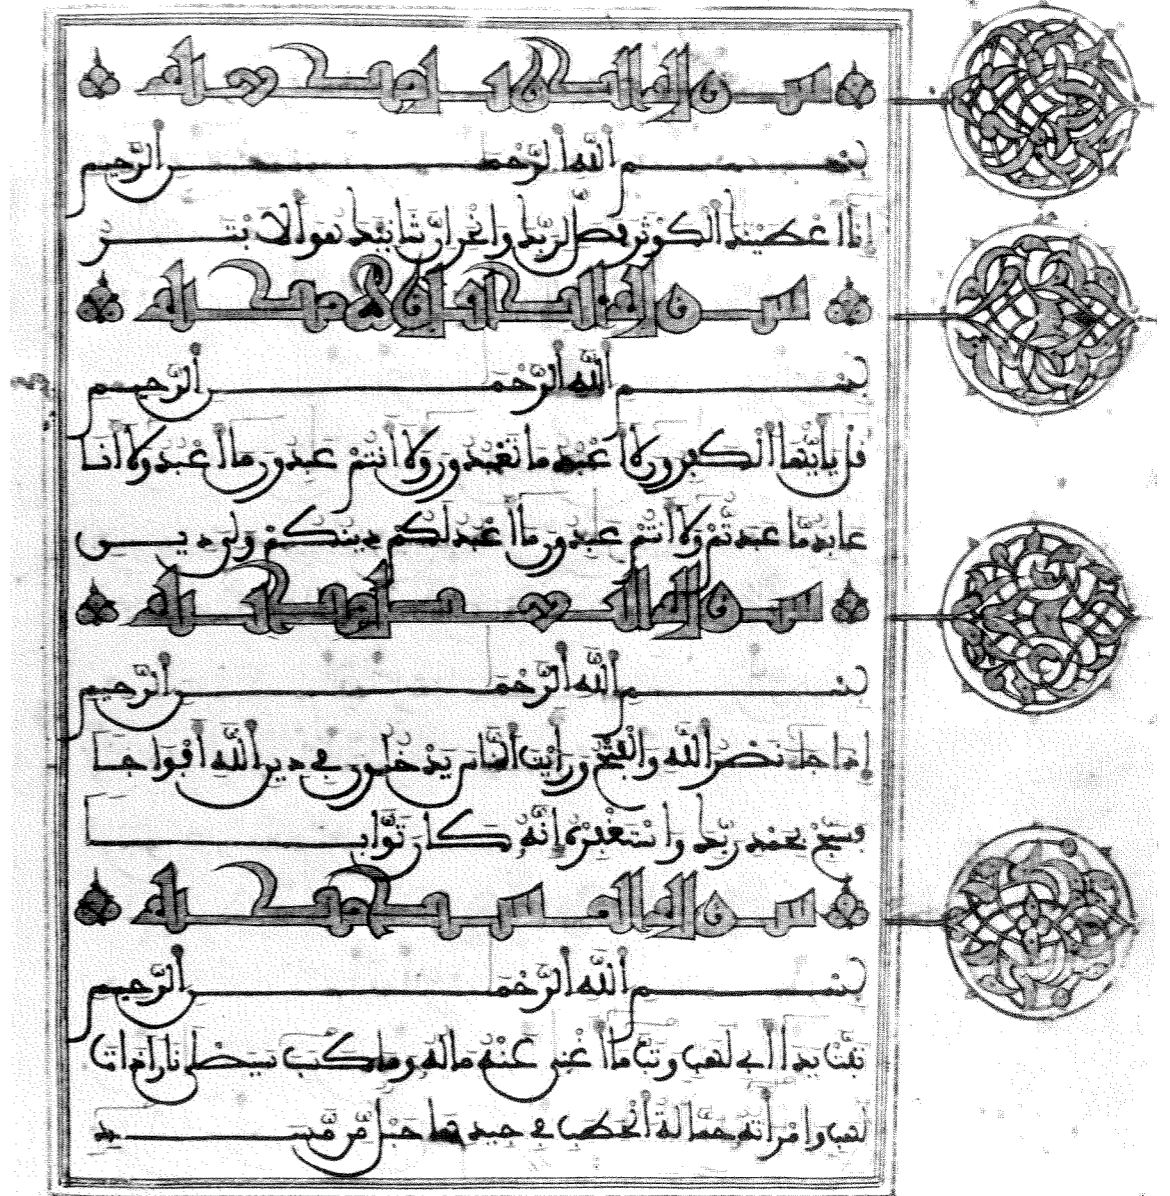 سورة الكوثر
بسم الله الرحمن الرحيم
إنا أعطينك الكوثر فصل لربك وانحر إن شانئك هو الابتر
سورة الكافرون
بسم الله الرحمن الرحيم
قل يأيها الكفرون لا أعبد ما تعبدون ولا أنتم عبدون ما أعبد ولا أنا
عابد ما عبدتم ولا أنتم عبدون ما أعبد لكم دينكم ولي دين
سورة
بسم الله الرحمن الرحيم
إذا جاء نصر الله والفتح ورأيت الناس يدخلون في دين الله أفواجا
فسبح بحمد ربك واستغفره إنه كان توابا
سورة المسد
بسم الله الرحمن الرحيم
تبت يدا أبي لهب وتب ما أغنى عنه ماله وما كسب سيصلى نارا ذات
لهب وامرأته حمالة الحطب في جيدها حبل من مسد